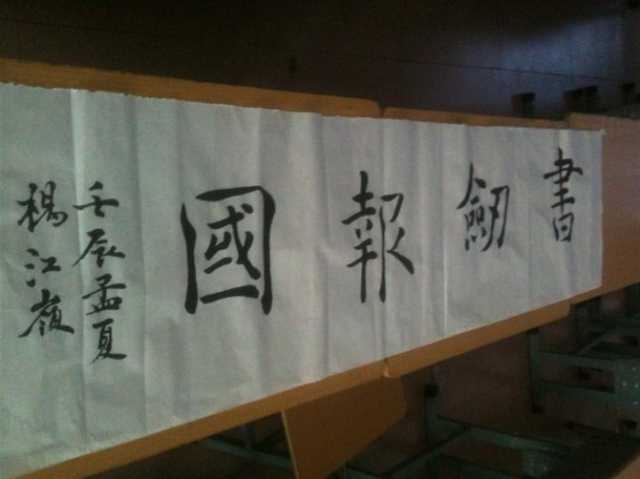 書劒報國
壬辰孟夏
楊江嶺